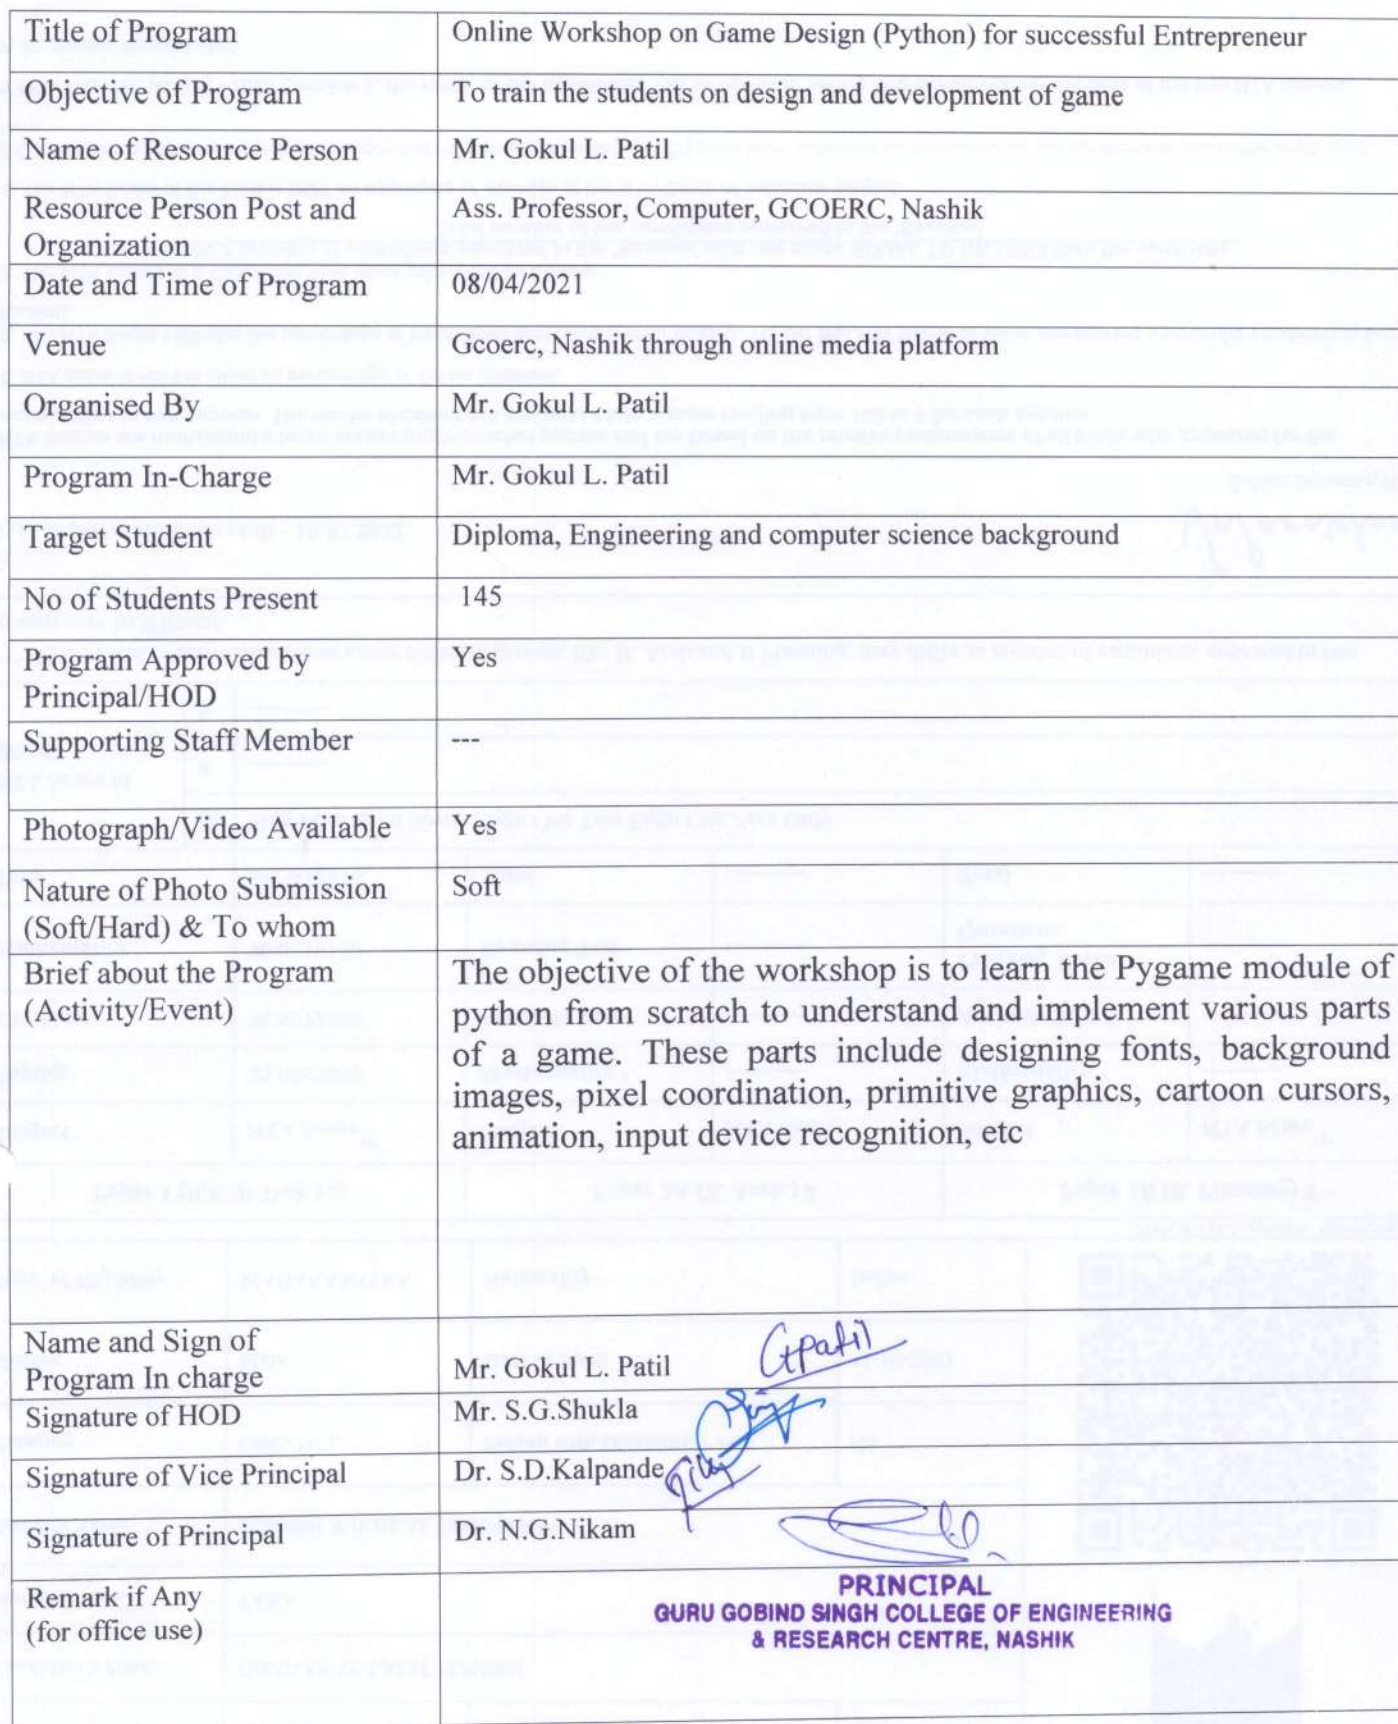 Title of Program
Online Workshop on Game Design (Python) for successful Entrepreneur
Objective of Program
To train the students on design and development of game
Name of Resource Person
Mr. Gokul L. Patil
Resource Person Post and
Organization
Ass. Professor, Computer, GCOERC, Nashik
Date and Time of Program
08/04/2021
Venue
Gcoerc, Nashik through online media platform
Organised By
Mr. Gokul L. Patil
Program In-Charge
Mr. Gokul L. Patil
Target Student
Diploma, Engineering and computer science background
No of Students Present
145
Program Approved by
Principal/HOD
Yes
Supporting Staff Member
---
Photograph/Video Available
Yes
Nature of Photo Submission
(Soft/Hard) & To whom
Soft
Brief about the Program
(Activity/Event)
The objective of the workshop is to learn the Pygame module of
python from scratch to understand and implement various parts
of a game. These parts include designing fonts, background
images, pixel coordination, primitive graphics, cartoon cursors,
animation, input device recognition, etc
Name and Sign of
Program In charge
Mr. Gokul L. Patil
GPatil
Signature of HOD
Mr. S.G.Shukla
Signature of Vice Principal
Dr. S.D.Kalpande
Signature of Principal
Dr. N.G.Nikam
Remark if Any
(for office use)
PRINCIPAL
GURU GOBIND SINGH COLLEGE OF ENGINEERING
& RESEARCH CENTRE, NASHIK